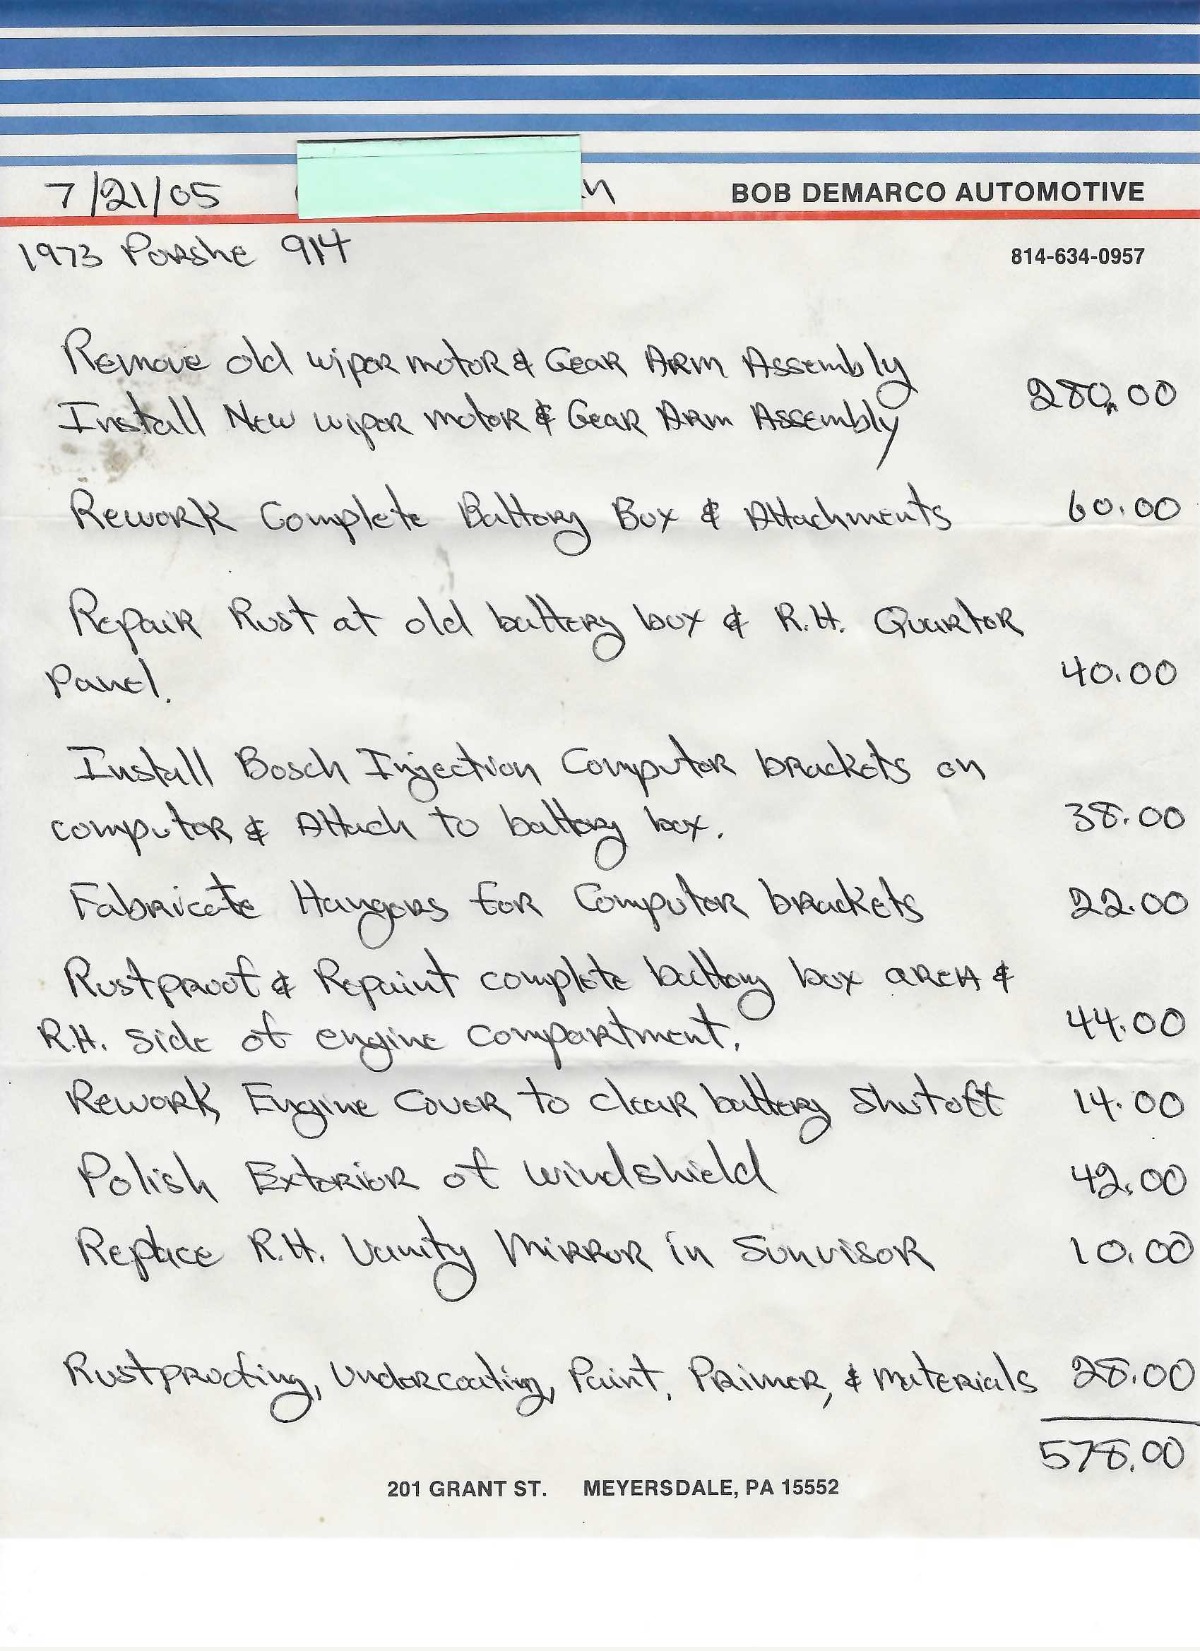 7/21/05
BOB DEMARCO AUTOMOTIVE
1973 Porshe 914
814-634-0957
Remove old wiper motor & Gear Arm Assembly
Install New wiper motor & Gear Arm Assembly 280.00
Rework Complete Battery Box & Attachments 60.00
Repair Rust at old battery box & R.H. Quarter
Panel. 40.00
Install Bosch Injection Computer brackets on
computer & Attach to battery box. 38.00
Fabricate Hangers for Computer brackets 22.00
Rustproof & Repaint complete battery box area &
R.H. side of engine compartment. 44.00
Rework Engine Cover to clear battery shutoff 14.00
Polish Exterior of windshield 42.00
Replace R.H. Vanity Mirror in Sunvisor 10.00
Rustproofing, Undercoating, Paint, Primer, & materials 28.00
578.00
201 GRANT ST. MEYERSDALE, PA 15552